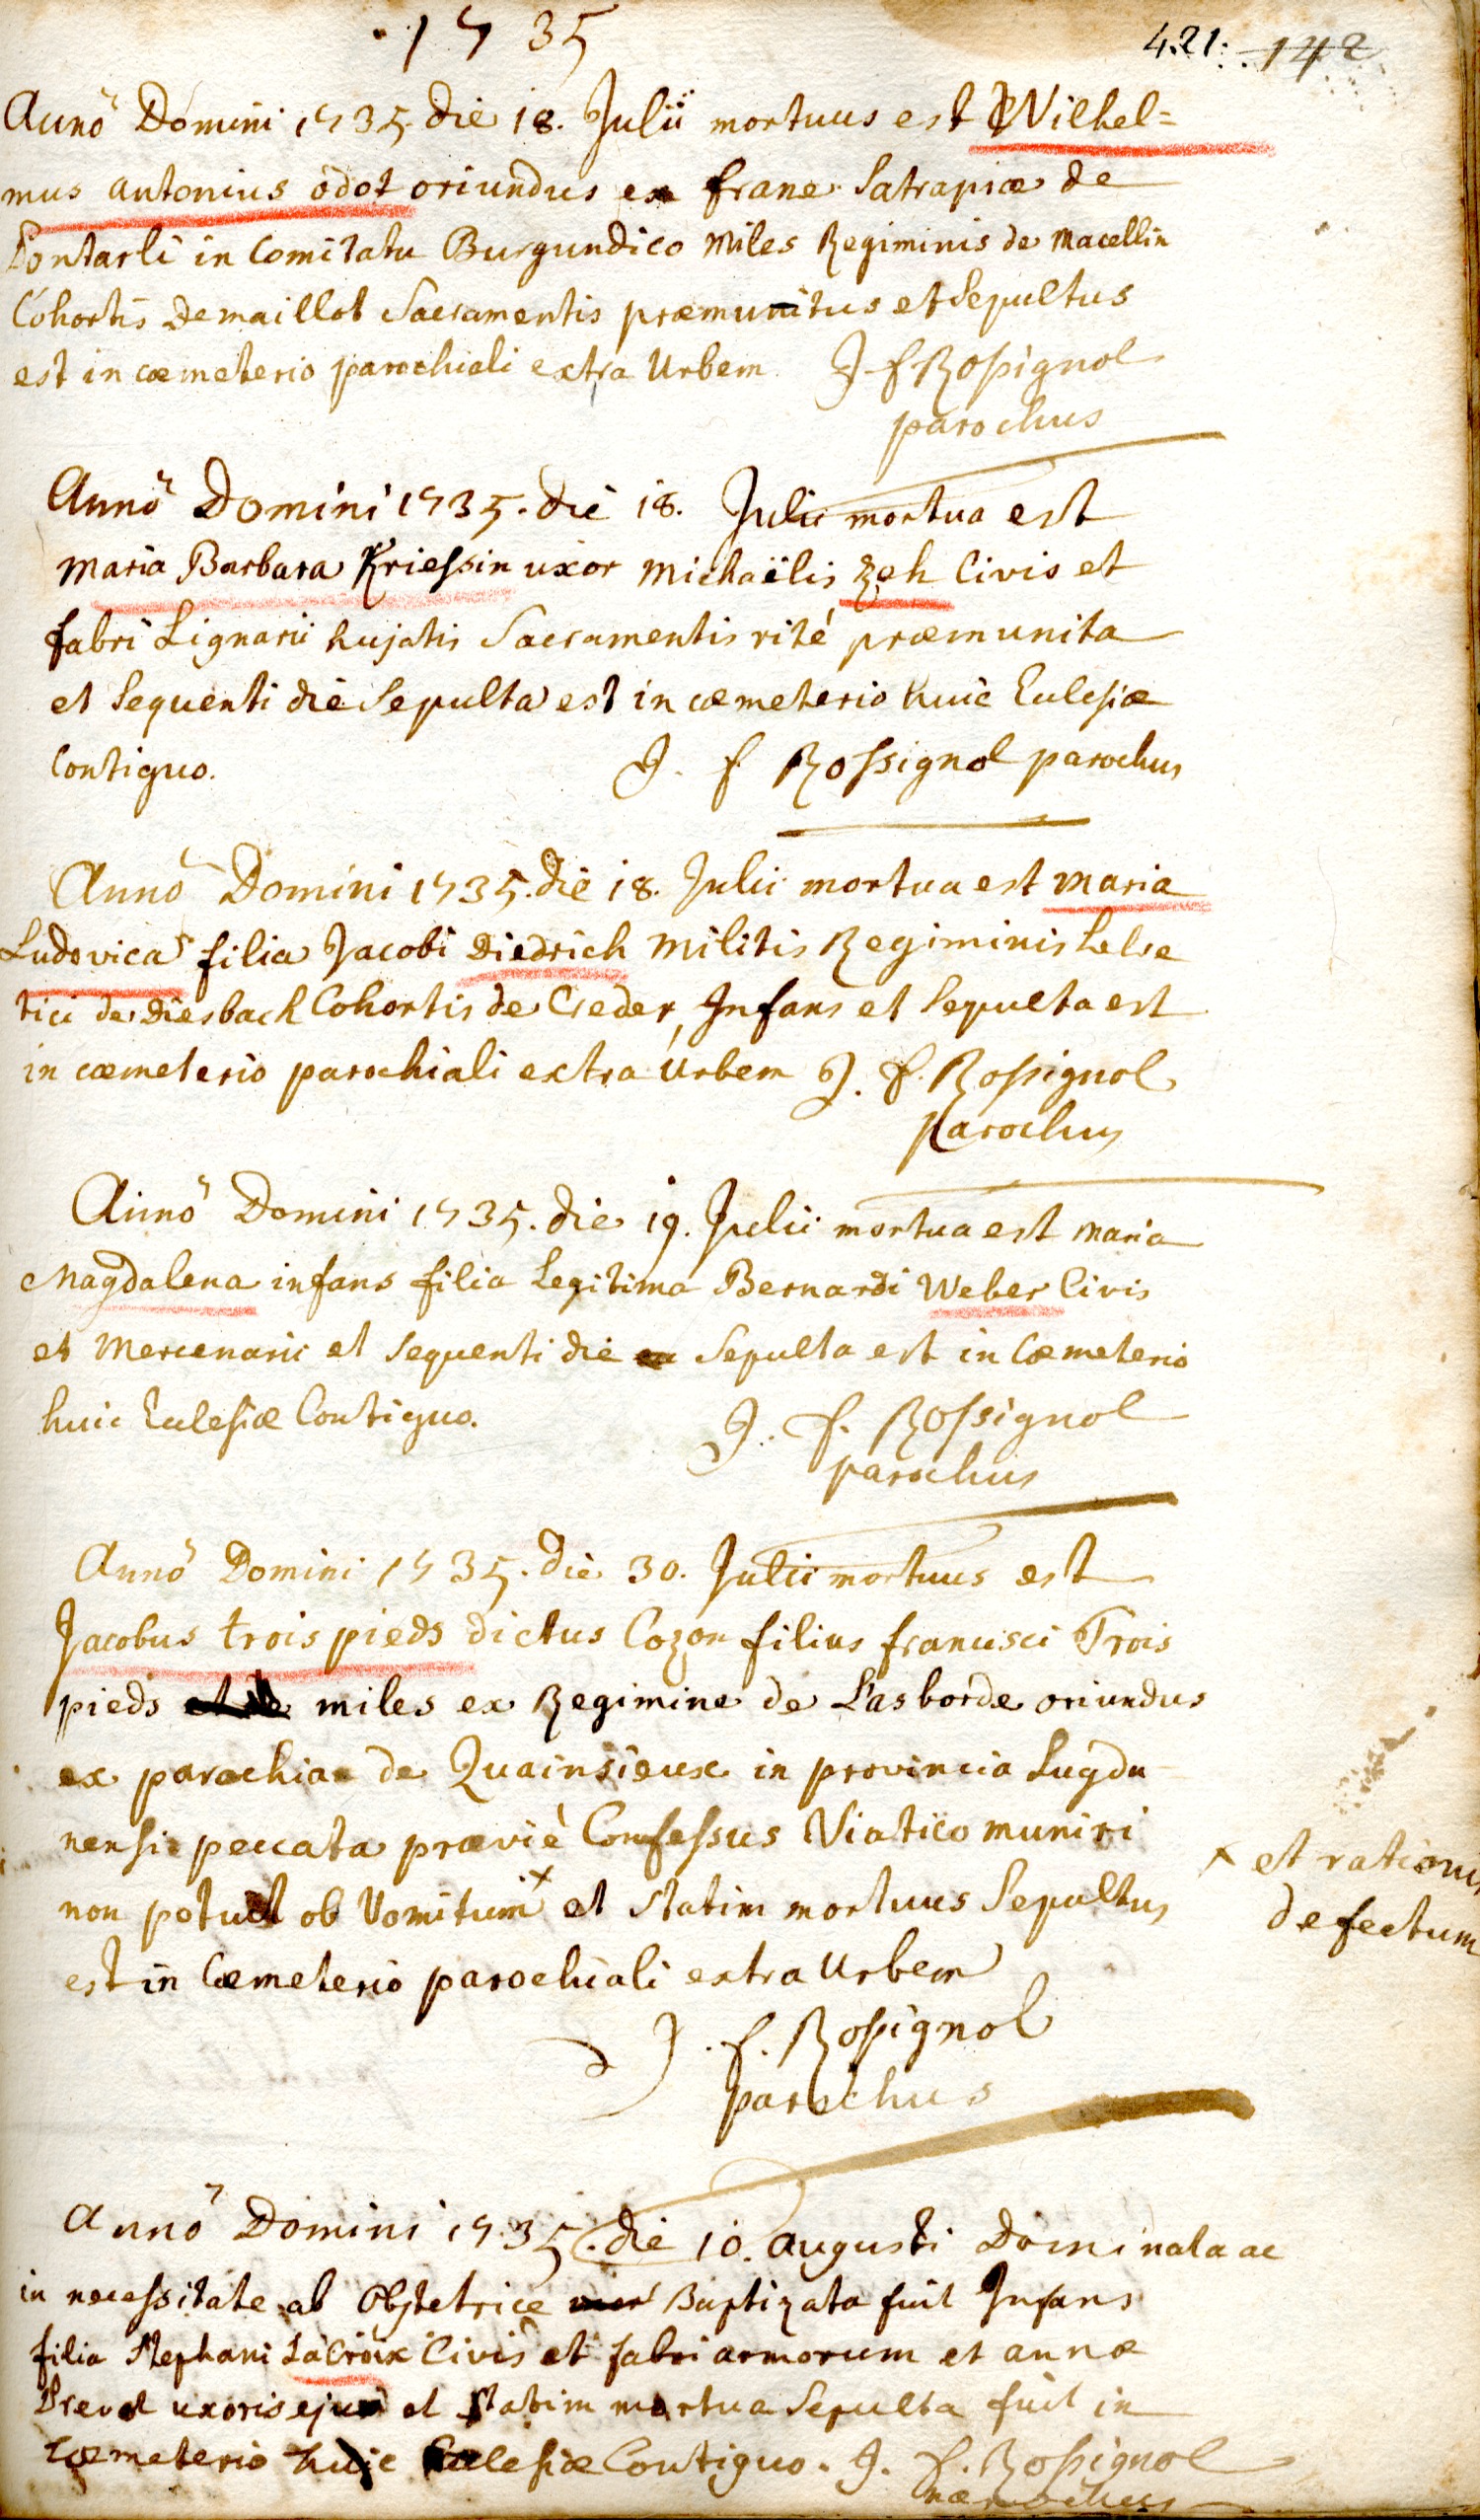 1735
421. 142
Anno Domini 1735. die 18. Julii mortuus est Wilhel=
mus antonius odot oriundus ex frane Satrapiæ de
Pontarli in Comitatu Burgundico Miles Regiminis de Macellin
Cohortis Demaillot Sacramentis præmunitus et Sepultus
est in cæmeterio parochiali extra Urbem J. f Rossignol
parochus
Anno Domini 1735. die 18. Julii mortua est
Maria Barbara Kriessin uxor Michaëlis Zeh Civis et
fabri Lignarii hujatis Sacramentis rité præmunita
et Sequenti die Sepulta est in cæmeterio huic Eclesiæ
Contiguo. J. f Rossignol parochus
Anno Domini 1735. die 18. Julii mortua est Maria
Ludovica filia Jacobi Diedrich Militis Regiminis helve
tici de Diesbach Cohortis de Creder, Infans et Sepulta est
in cæmeterio parochiali extra Urbem J. f. Rossignol
parochus
Anno Domini 1735. die 19. Julii mortua est Maria
Magdalena infans filia Legitima Bernardi Weber Civis
et Mercenarii et sequenti die Sepulta est in Cæmeterio
huic Eclesiæ Contiguo. J. f. Rossignol
parochus
Anno Domini 1735. die 30. Julii mortuus est
Jacobus trois pieds dictus Cozon filius francisci Trois
pieds miles ex Regimine de Lasborde oriundus
ex parochia de Quainsieux in provincia Lugdu
nensi peccata prævié Confessus Viatico muniri
non potuit ob Vomitum x et statim mortuus Sepultus
x et rationis
defectum
est in Cæmeterio parochiali extra Urbem
J. f. Rossignol
parochus
Anno Domini 1735. die 10. augusti Domi nata ac
in necessitate ab Obstetrice Baptizata fuit Infans
filia Stephani LaCroix Civis et fabri armorum et annæ
Prevot uxoris ejus et statim mortua Sepulta fuit in
Cæmeterio huic Eclesiæ Contiguo. J. f. Rossignol
parochus